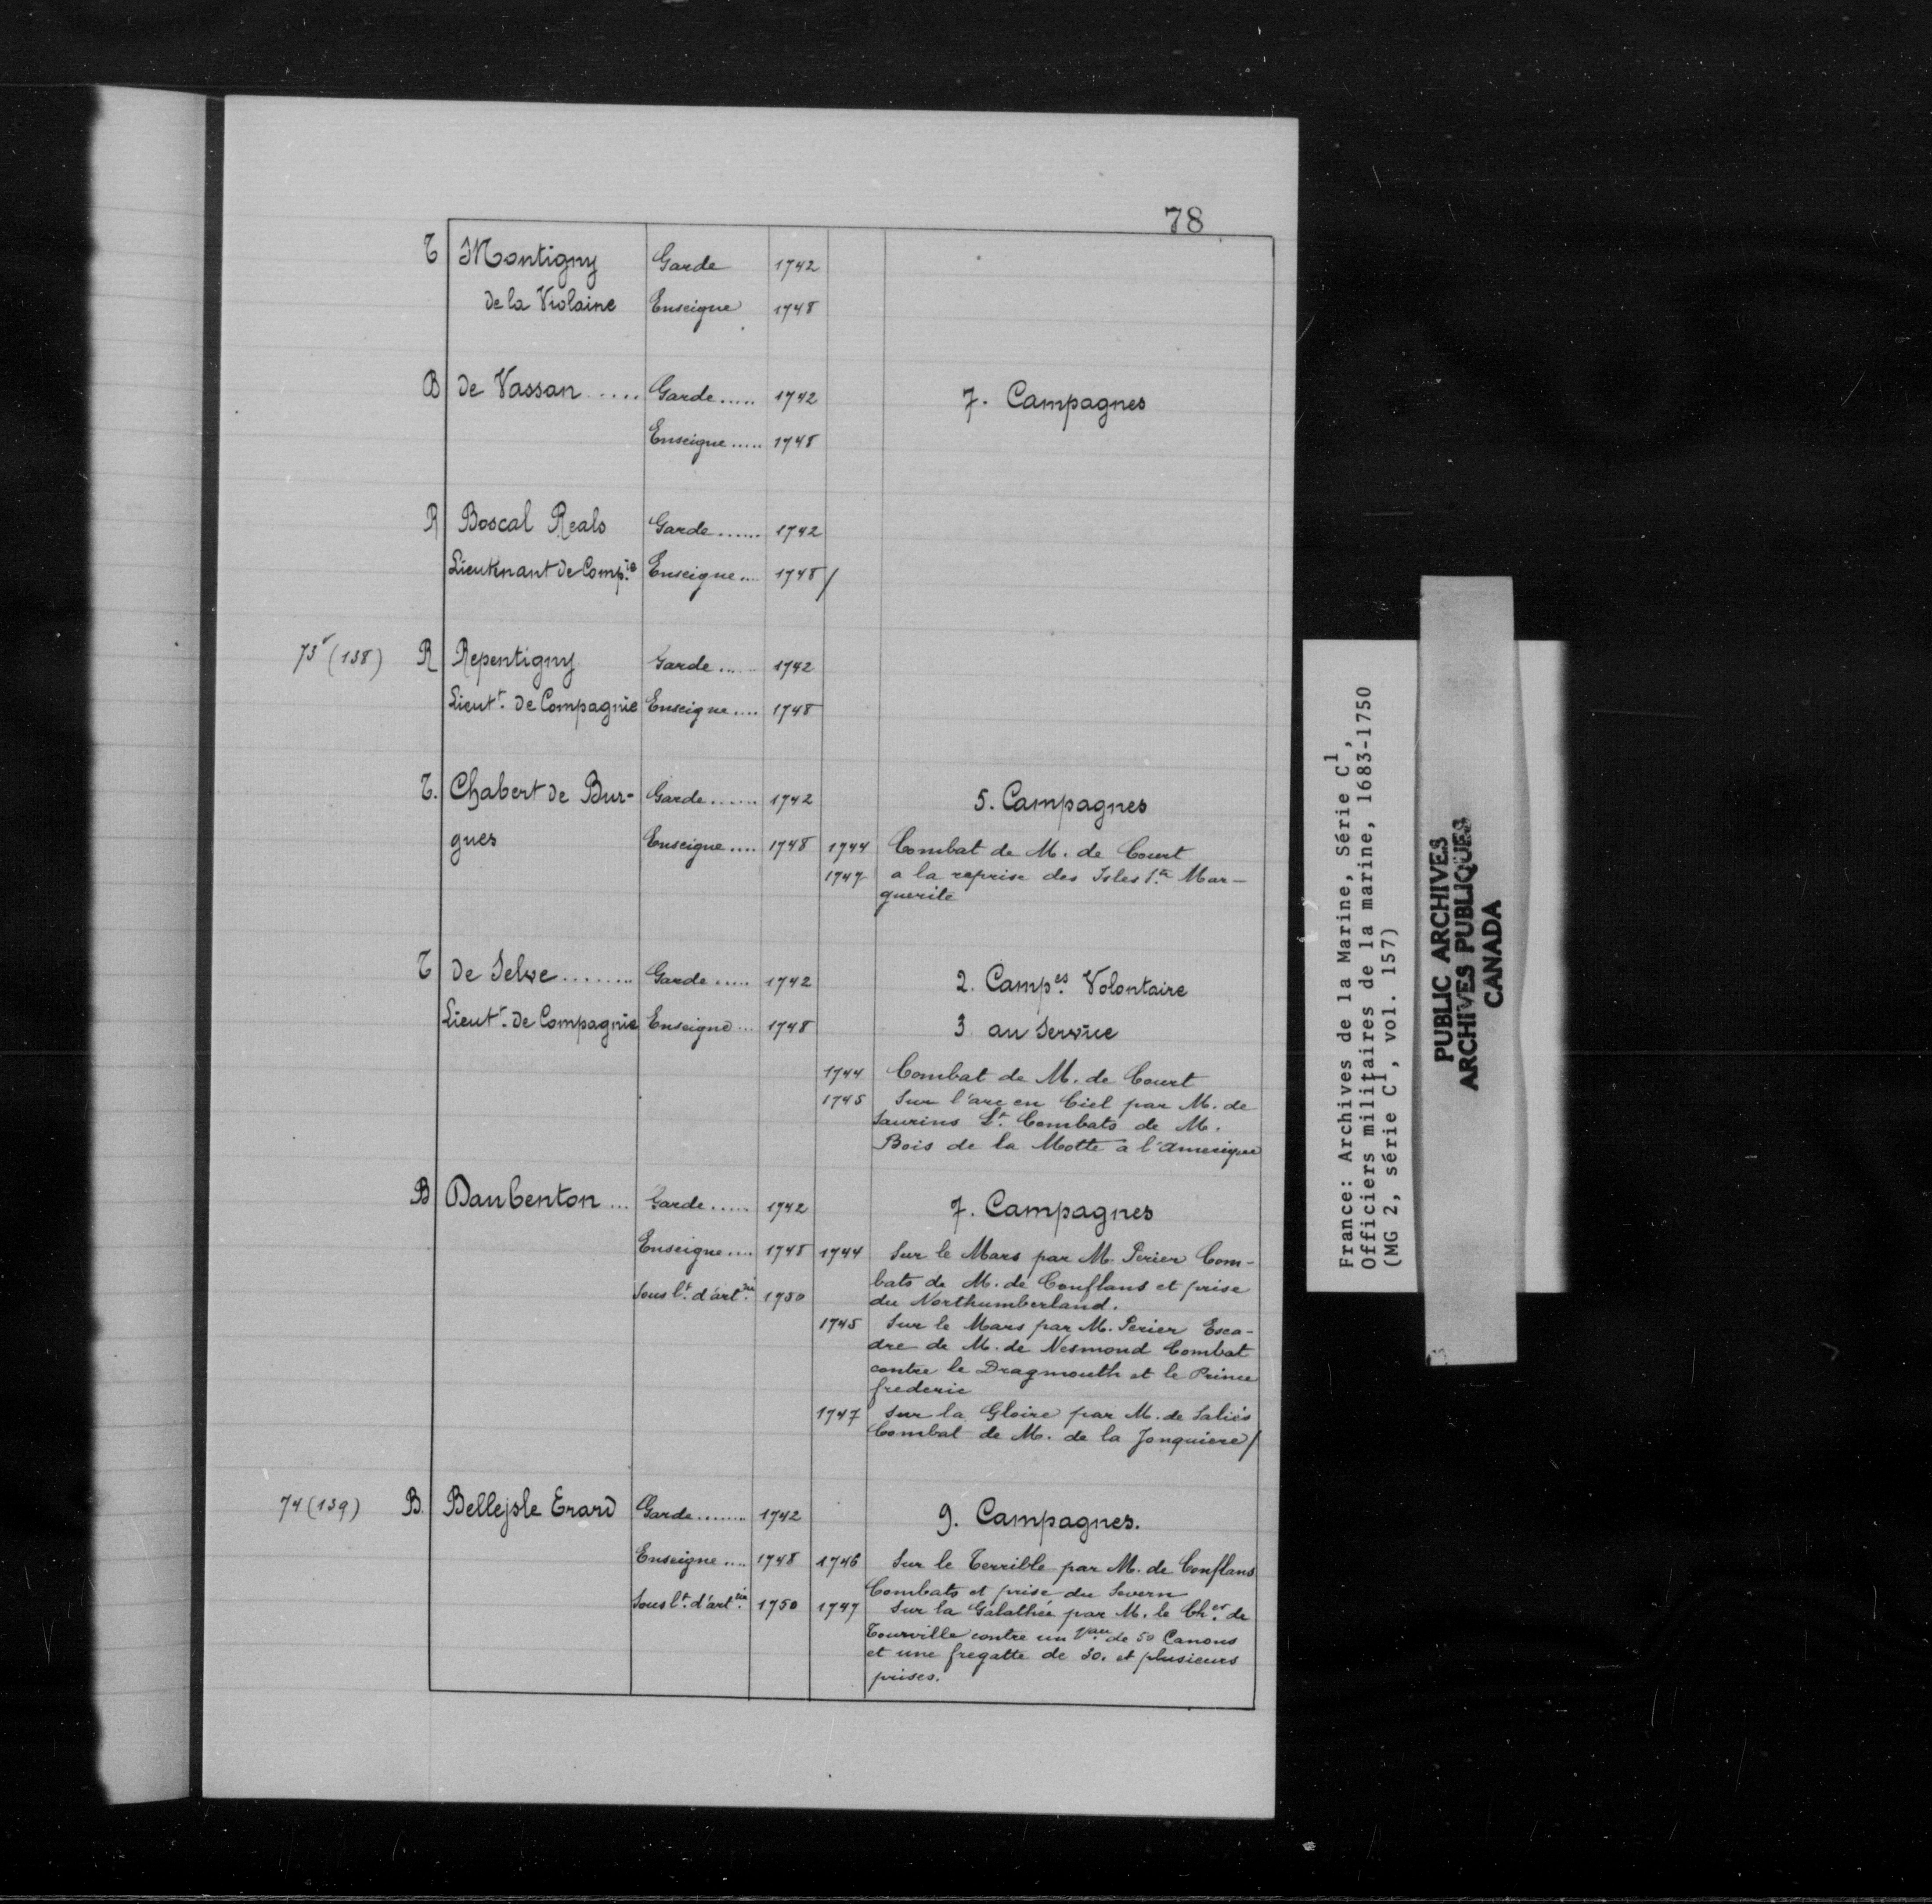 78
T Montigny Garde 1742
de la Violaine Enseigne 1748
B de Vassan ..... Garde ..... 1742 7. Campagnes
Enseigne ..... 1748
R Boscal Reals Garde ...... 1742
Lieutenant de Comp.ie Enseigne .... 1748/
73v (138) R Repentigny Garde ..... 1742
Lieut.t de Compagnie Enseigne .... 1748
T. Chabert de Bur- Garde ....... 1742 5. Campagnes
gues Enseigne .... 1748 1744 Combat de M. de Court
1747 a la reprise des Isles S.te Mar-
guerite
T de Selve ........ Garde ..... 1742 2. Camp.es Volontaire
Lieut.t de Compagnie Enseigne ... 1748 3 au Service
1744 Combat de M. de Court
1745 Sur l'arc en Ciel par M. de
Saurins L.t Combats de M.
Bois de la Motte a l'amerique
B Daubenton ... Garde ..... 1742 7. Campagnes
Enseigne .... 1748 1744 Sur le Mars par M. Perier Com-
bats de M. de Conflans et prise
Sous l.t d'art.rie 1750 du Northumberland.
1745 Sur le Mars par M. Perier Esca-
dre de M. de Nesmond Combat
contre le Dragmouth et le Prince
frederic
1747 Sur la Gloire par M. de Saliés
Combat de M. de la Jonquiere/
74 (139) B. Bellejsle Erard Garde ........ 1742 9. Campagnes.
Enseigne .... 1748 1746 Sur le Terrible par M. de Conflans
Combats et prise du Severn
Sous l.t d'art.rie 1750 1747 Sur la Galathée par M. le Ch.er de
Tourville contre un V.au de 50 Canons
et une fregatte de 30. et plusieurs
prises.
France: Archives de la Marine, Série C1,
Officiers militaires de la marine, 1683-1750
(MG 2, série C1, vol. 157)
PUBLIC ARCHIVES
ARCHIVES PUBLIQUES
CANADA